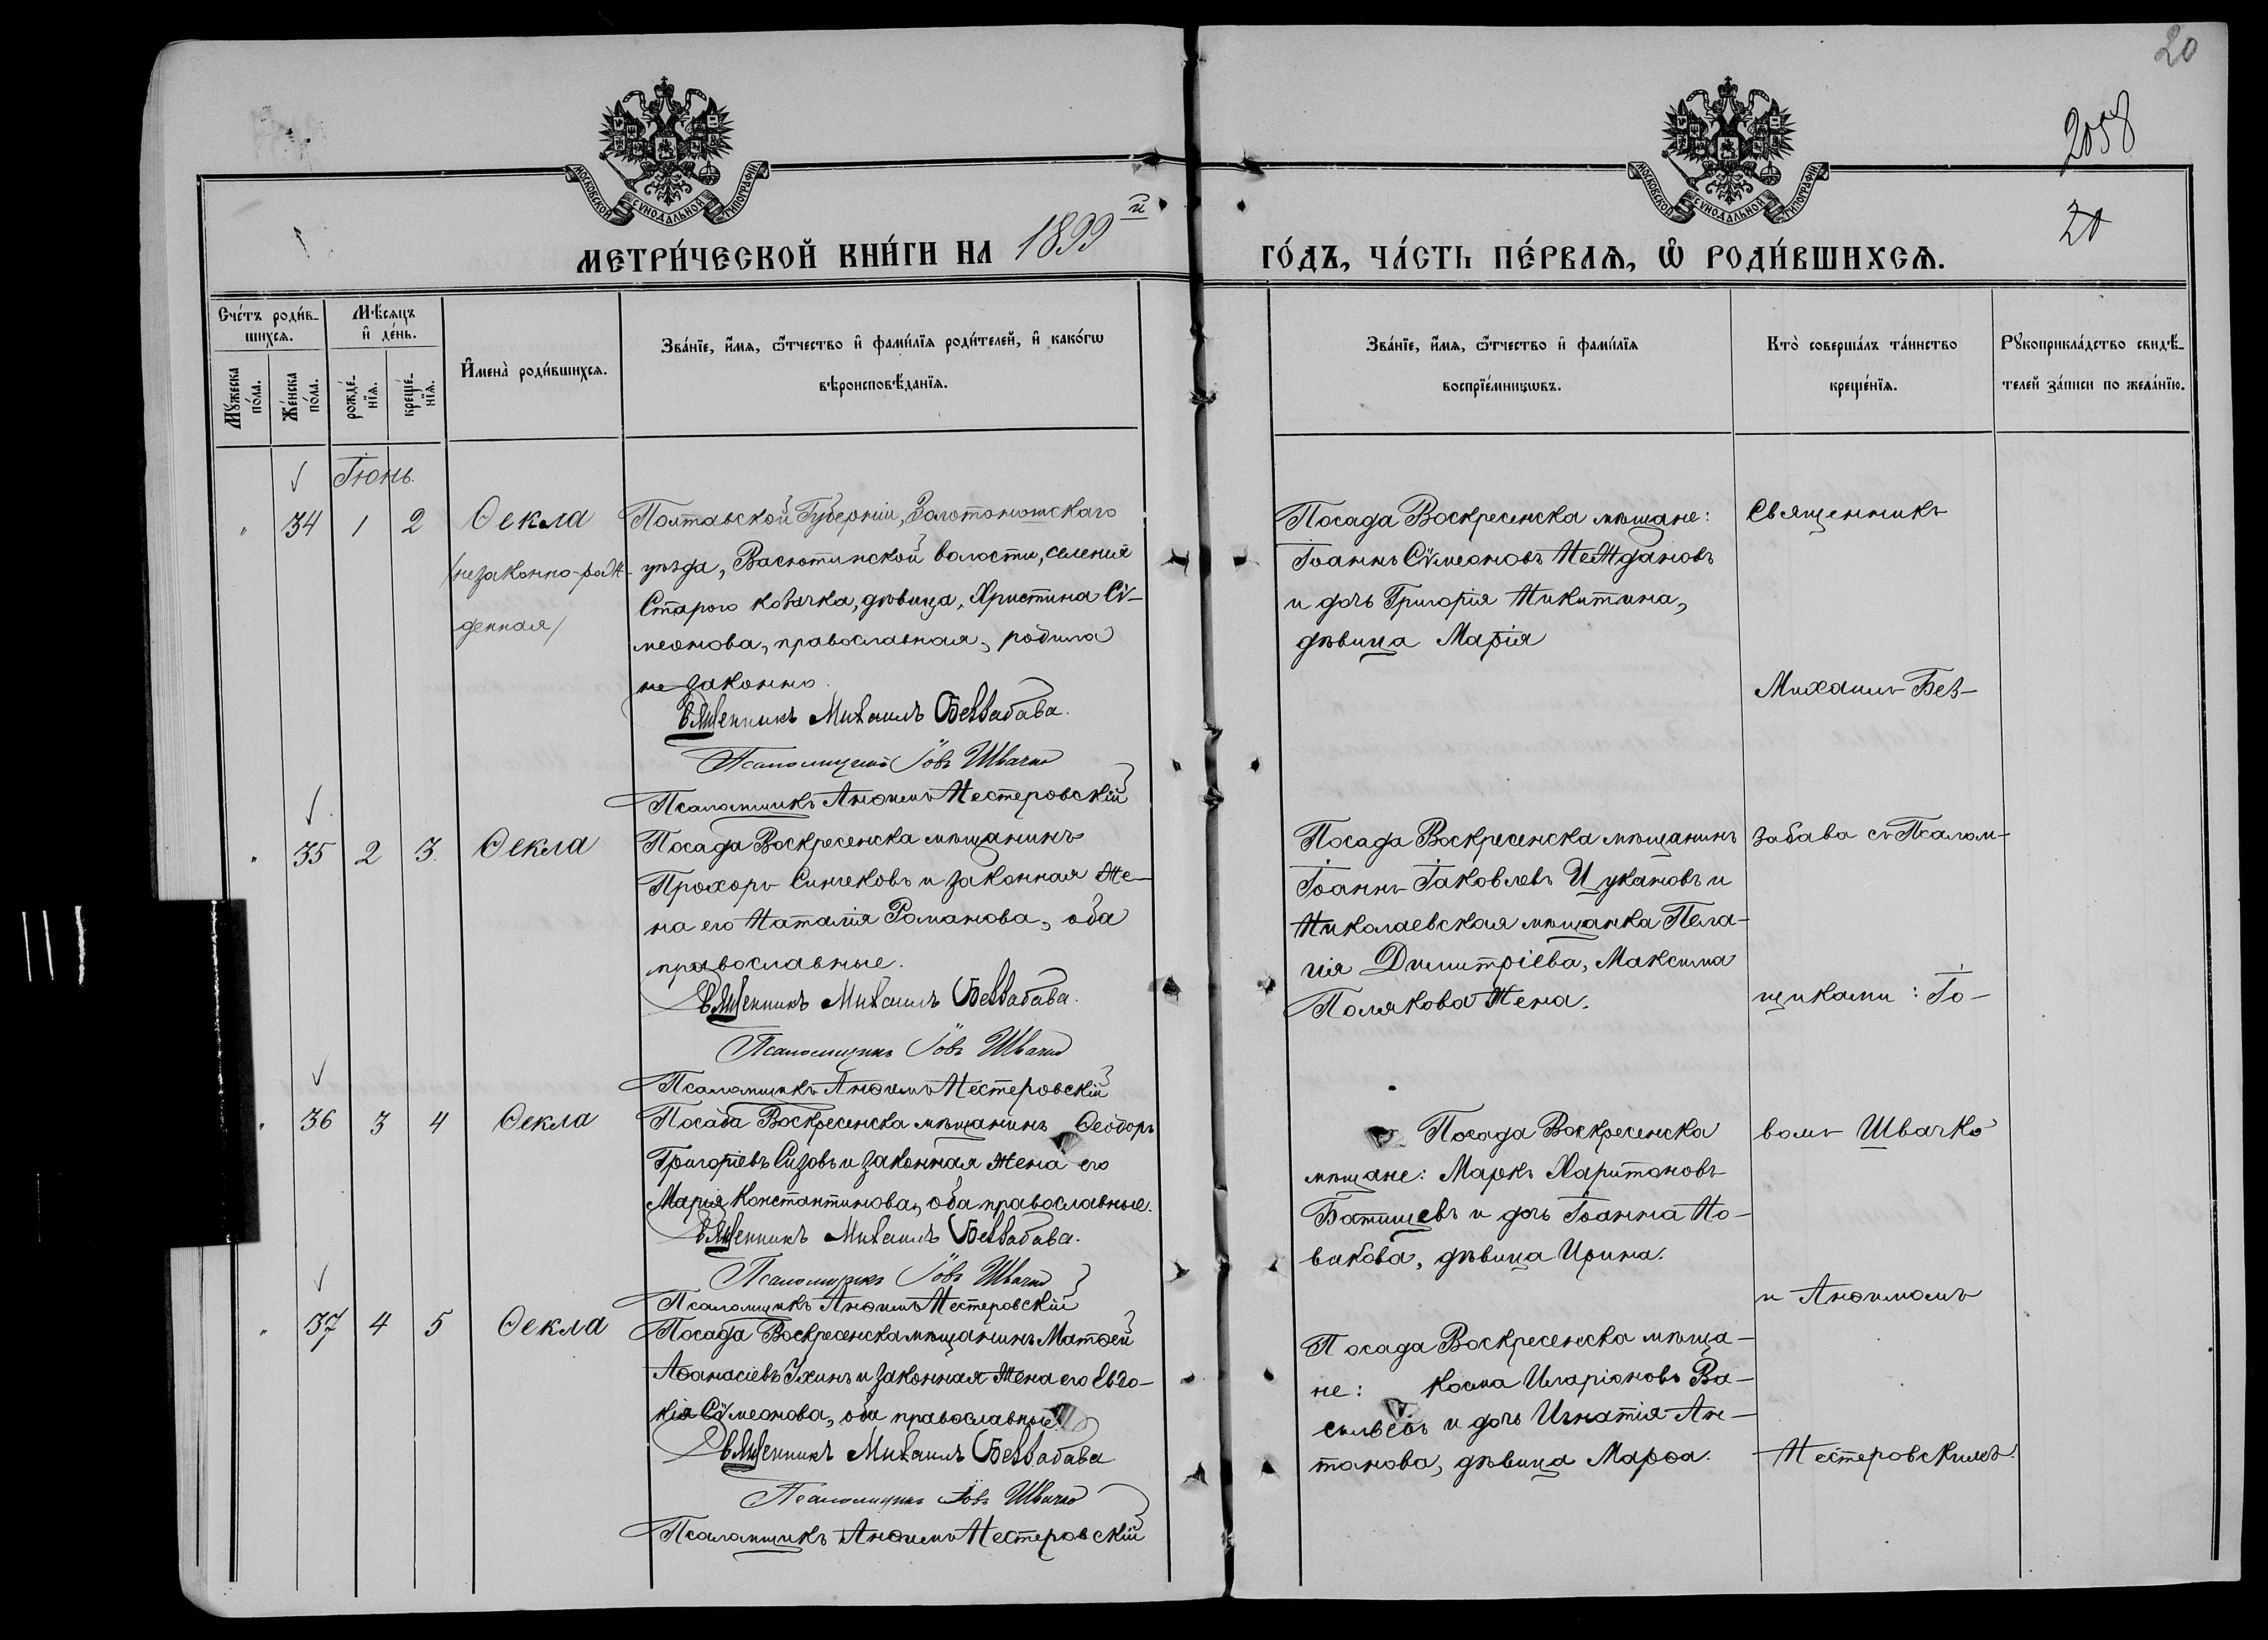 20
2058
20
МОСКОВСКОЙ СѴНОДАЛЬНОЙ ТИПОГРАФІИ.
МОСКОВСКОЙ СѴНОДАЛЬНОЙ ТИПОГРАФІИ.
МЕТРИ́ЧЕСКОЙ КНИ́ГИ НА 1899й
ГО́ДЪ, ЧА́СТЬ ПЕ́РВАѦ, Ѡ РОДИ́ВШИХСѦ.
Сче́тъ роди́в-
шихсѧ.
Мѣ́сѧцъ
и҆ де́нь.
Мꙋ́жеска
по́ла.
Же́нска
по́ла.
рожде́-
нїѧ.
креще́-
нїѧ.
И҆мена̀ роди́вшихсѧ.
Зва́нїе, и҆́мѧ, ѻ҆́тчество и҆ фами́лїѧ роди́телей, и҆ како́гѡ
вѣроисповѣ́данїѧ.
Зва́нїе, и҆́мѧ, ѻ҆́тчество и҆ фами́лїѧ
воспрїе́мникѡвъ.
Кто̀ соверша́лъ та́инство
креще́нїѧ.
Рꙋкоприкла́дство свидѣ́-
телей за́писи по жела́нїю.
Іюнь.
" 34 1 2 Ѳекла
/незаконно-рож-
денная/
Полтавской Губерніи, Золотоношскаго
уѣзда, Васютинской волости, селенія
Старого Ковачка, дѣвица, Христина Сѵ-
меонова, православная, родила
незаконно.
Священникъ Михаилъ Беззабава.
Псаломщикъ Іовъ Швачко
Псаломщикъ Анѳимъ Нестеровскій
Посада Воскресенска мѣщане:
Іоаннъ Сѵмеоновъ Неждановъ
и дочь Григорія Никитина,
дѣвица Марія
Священникъ
Михаилъ Без-
" 35 2 3. Ѳекла
Посада Воскресенска мѣщанинъ
Прохоръ Синчковъ и законная же-
на его Наталія Романова, оба
православные.
Священникъ Михаилъ Беззабава.
Псаломщикъ Іовъ Швачко
Псаломщикъ Анѳимъ Нестеровскій
Посада Воскресенска мѣщанинъ
Іоаннъ Іаковлевъ Цукановъ и
Николаевская мѣщанка Пела-
гія Димитріева, Максима
Полякова жена.
забава съ Псалом-
щиками: Іо-
" 36 3 4 Ѳекла
Посада Воскресенска мѣщанинъ Ѳеодоръ
Григоріевъ Сизовъ и законная жена его
Марія Константинова, оба православные.
Священникъ Михаилъ Беззабава.
Псаломщикъ Іовъ Швачко
Псаломщикъ Анѳимъ Нестеровскій
Посада Воскресенска
мѣщане: Маркъ Харитоновъ
Батищевъ и дочь Іоанна Но-
викова, дѣвица Ирина.
вомъ Швачко
и Анѳимомъ
" 37 4 5 Ѳекла
Посада Воскресенска мѣщанинъ Матѳей
Аѳанасіевъ Ухинъ и законная жена его Евдо-
кія Сѵмеонова, оба православные
Священникъ Михаилъ Беззабава
Псаломщикъ Іовъ Швачко
Псаломщикъ Анѳимъ Нестеровскій
Посада Воскресенска мѣща-
не: Косма Иларіоновъ Ва-
сильевъ и дочь Игнатія Ан-
тонова, дѣвица Марѳа.
Нестеровскимъ.